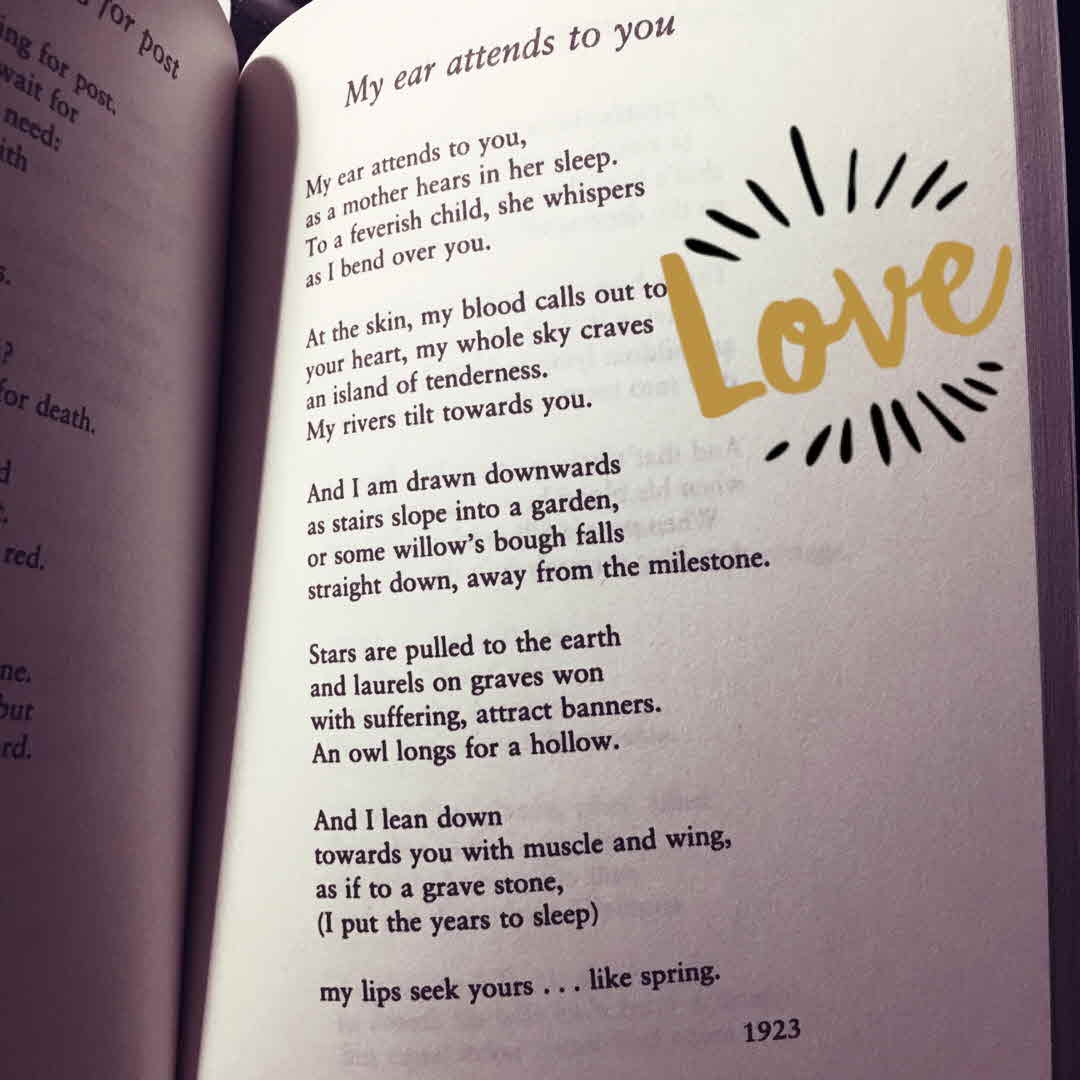 for post
ing for post.
wait for
need:
ith
s.
?
for death.
d
red.
ne.
but
rd.
My ear attends to you
My ear attends to you,
as a mother hears in her sleep.
To a feverish child, she whispers
as I bend over you.
At the skin, my blood calls out to
your heart, my whole sky craves
an island of tenderness.
My rivers tilt towards you.
And I am drawn downwards
as stairs slope into a garden,
or some willow's bough falls
straight down, away from the milestone.
Stars are pulled to the earth
and laurels on graves won
with suffering, attract banners.
An owl longs for a hollow.
And I lean down
towards you with muscle and wing,
as if to a grave stone,
(I put the years to sleep)
my lips seek yours . . . like spring.
1923
Love